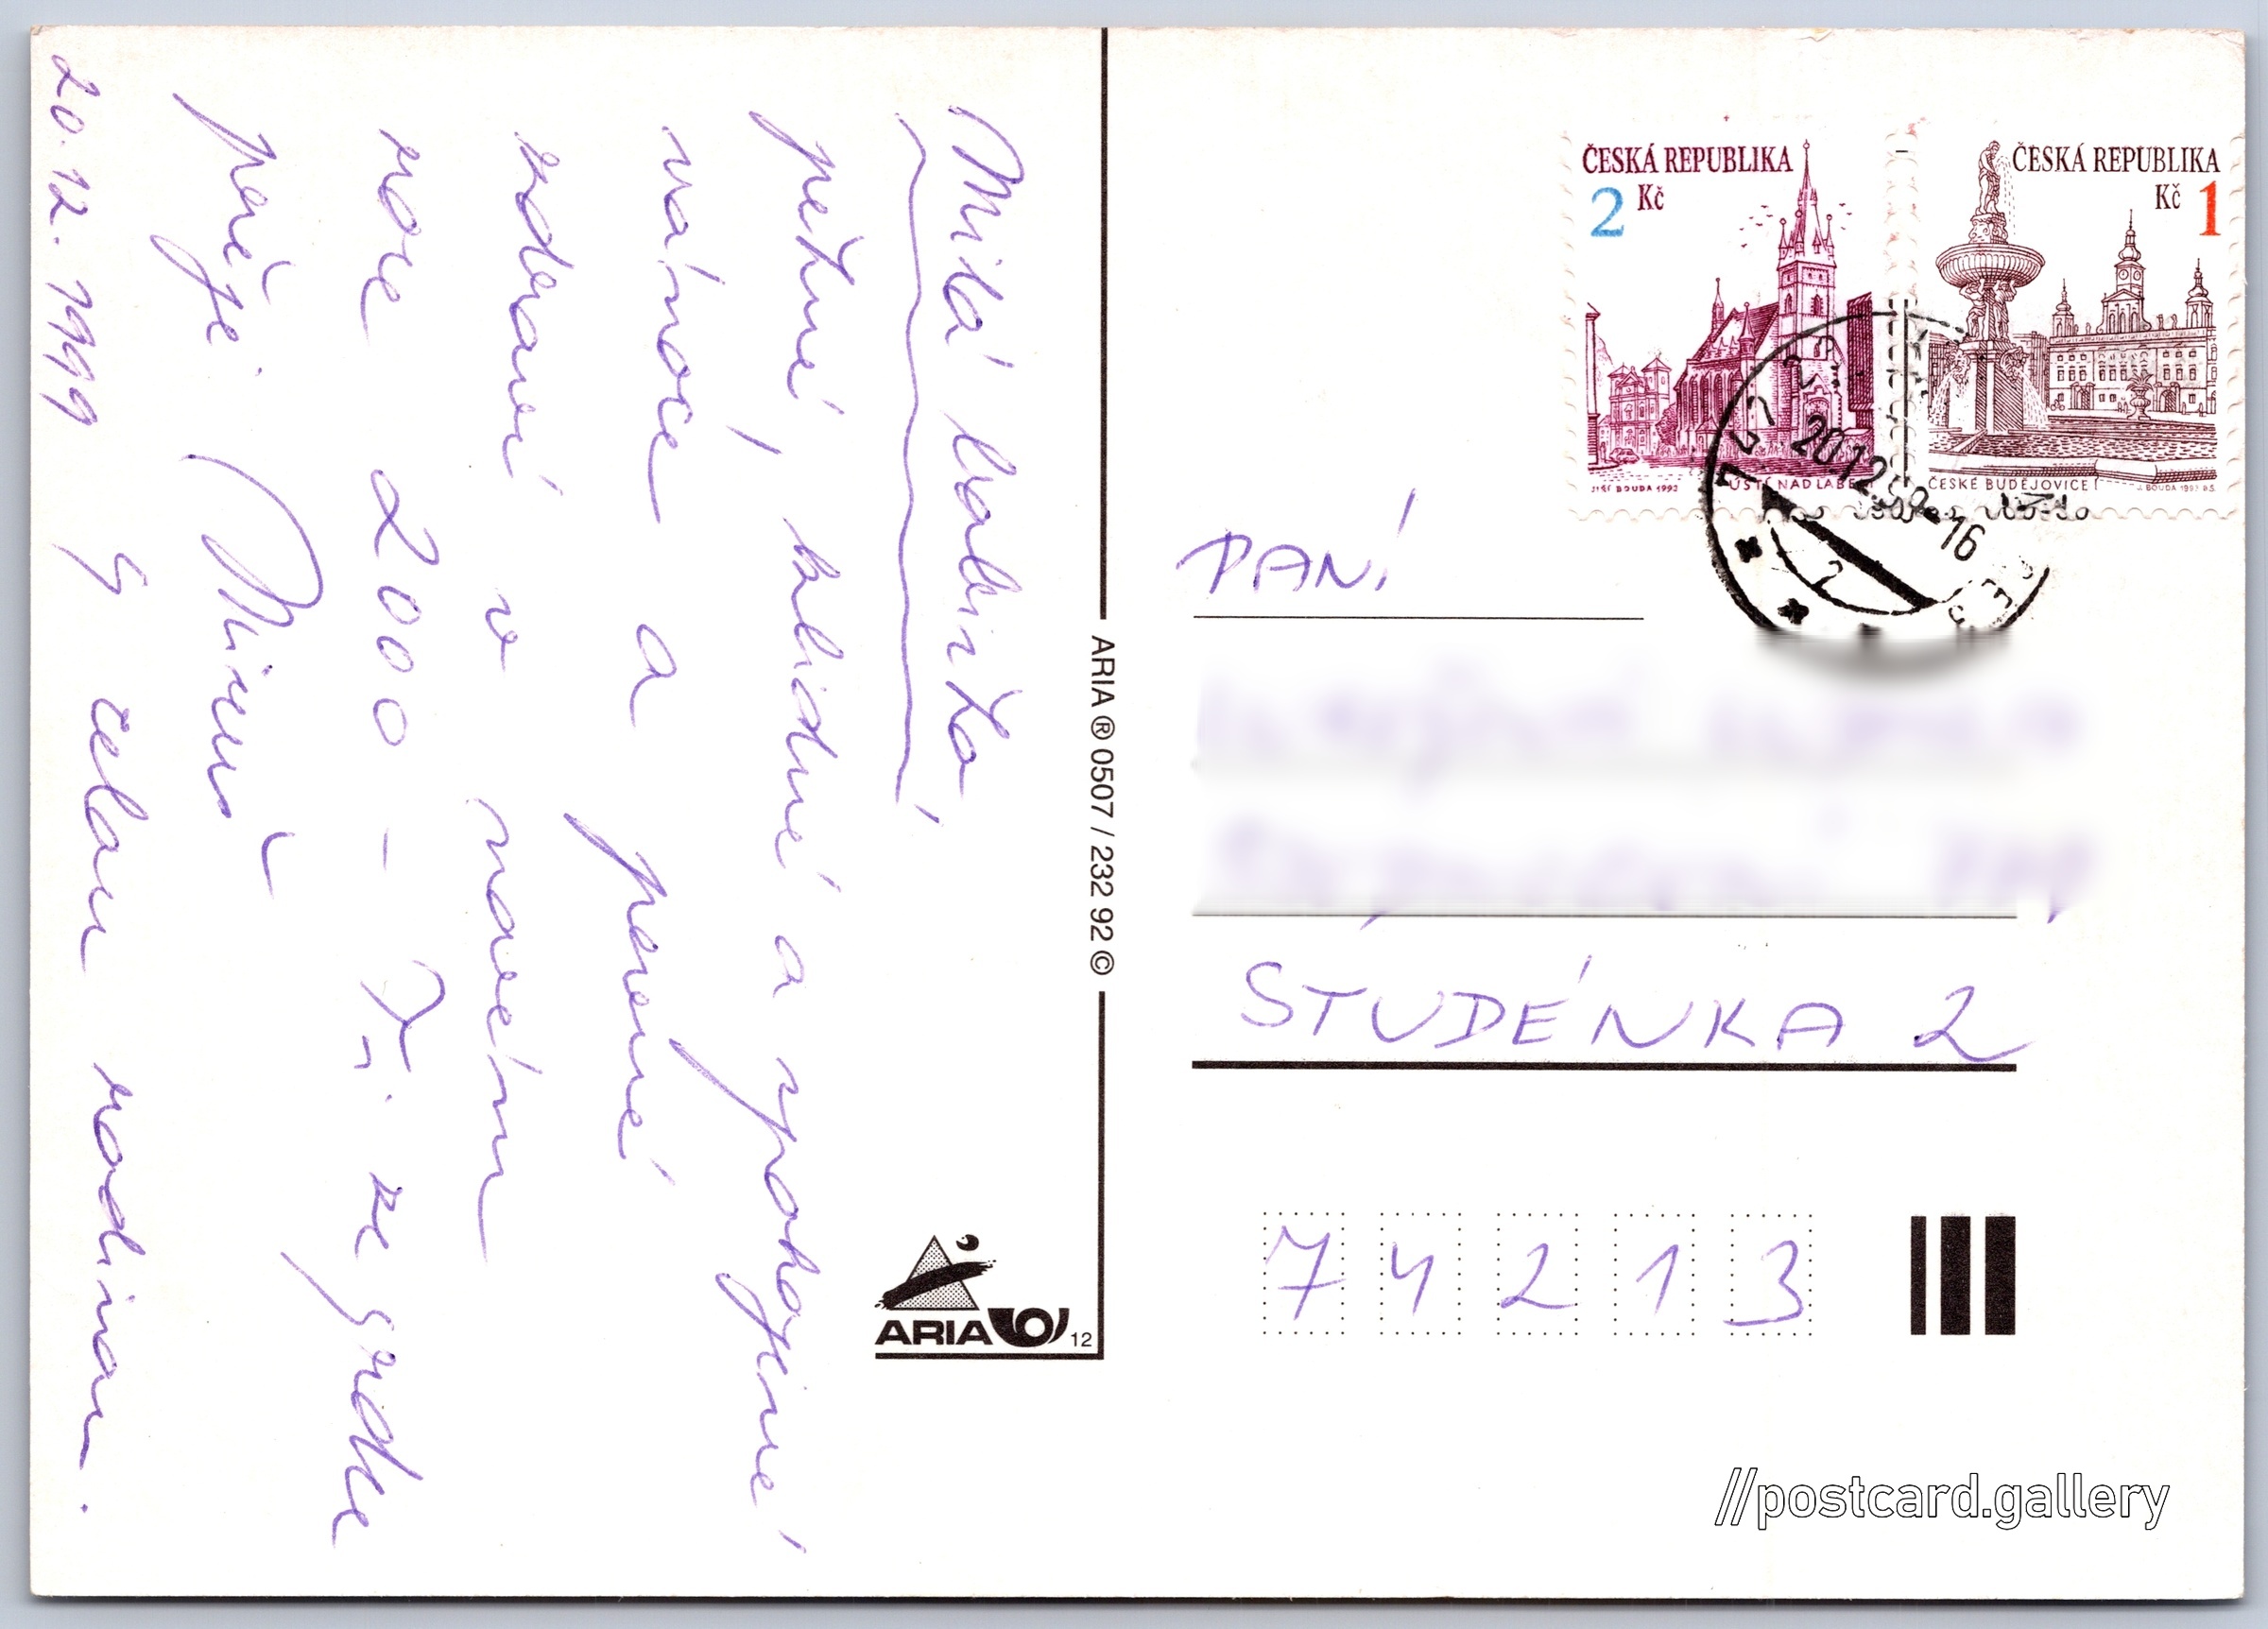 Milá babičko,
pěkné, klidné a spokojené
vánoce a pevné
zdraví v novém
roce 2000 – Ti ze srdce
přeje Miruš
20.12.1999 s celou rodinou.
ARIA ® 0507 / 232 92 ©
ARIA
12
ČESKÁ REPUBLIKA
2 Kč
JIŘÍ BOUDA 1992
ÚSTÍ NAD LABEM
ČESKÁ REPUBLIKA
Kč 1
ČESKÉ BUDĚJOVICE
J. BOUDA 1992
20.12.99-16
PANÍ
STUDÉNKA 2
74213
//postcard.gallery